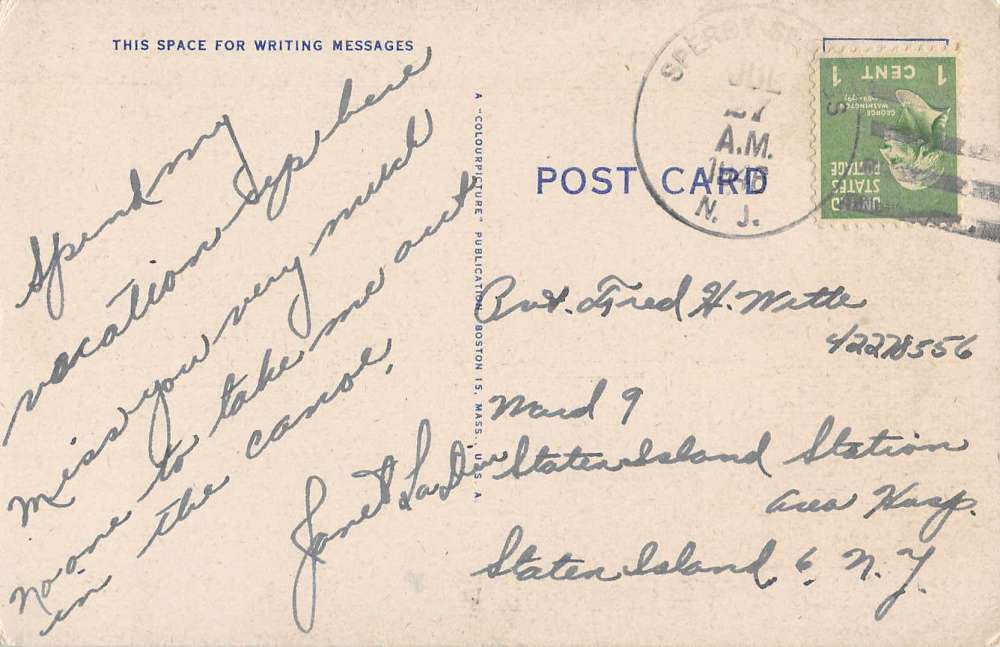 THIS SPACE FOR WRITING MESSAGES
Spend my
vacation up here
Miss you very much
No one to take me out
in the canoe.
Janet
A "COLOURPICTURE" PUBLICATION, BOSTON 15, MASS., U.S.A
POST CARD
SPERRY
JUL
27
A.M.
N. J.
1 CENT 1
GEORGE
WASHINGTON
UNITED
STATES
POSTAGE
Pvt. Fred H. Witte
42278556
Ward 9
Staten Island Station
area Hosp.
Staten Island 6, N. Y.